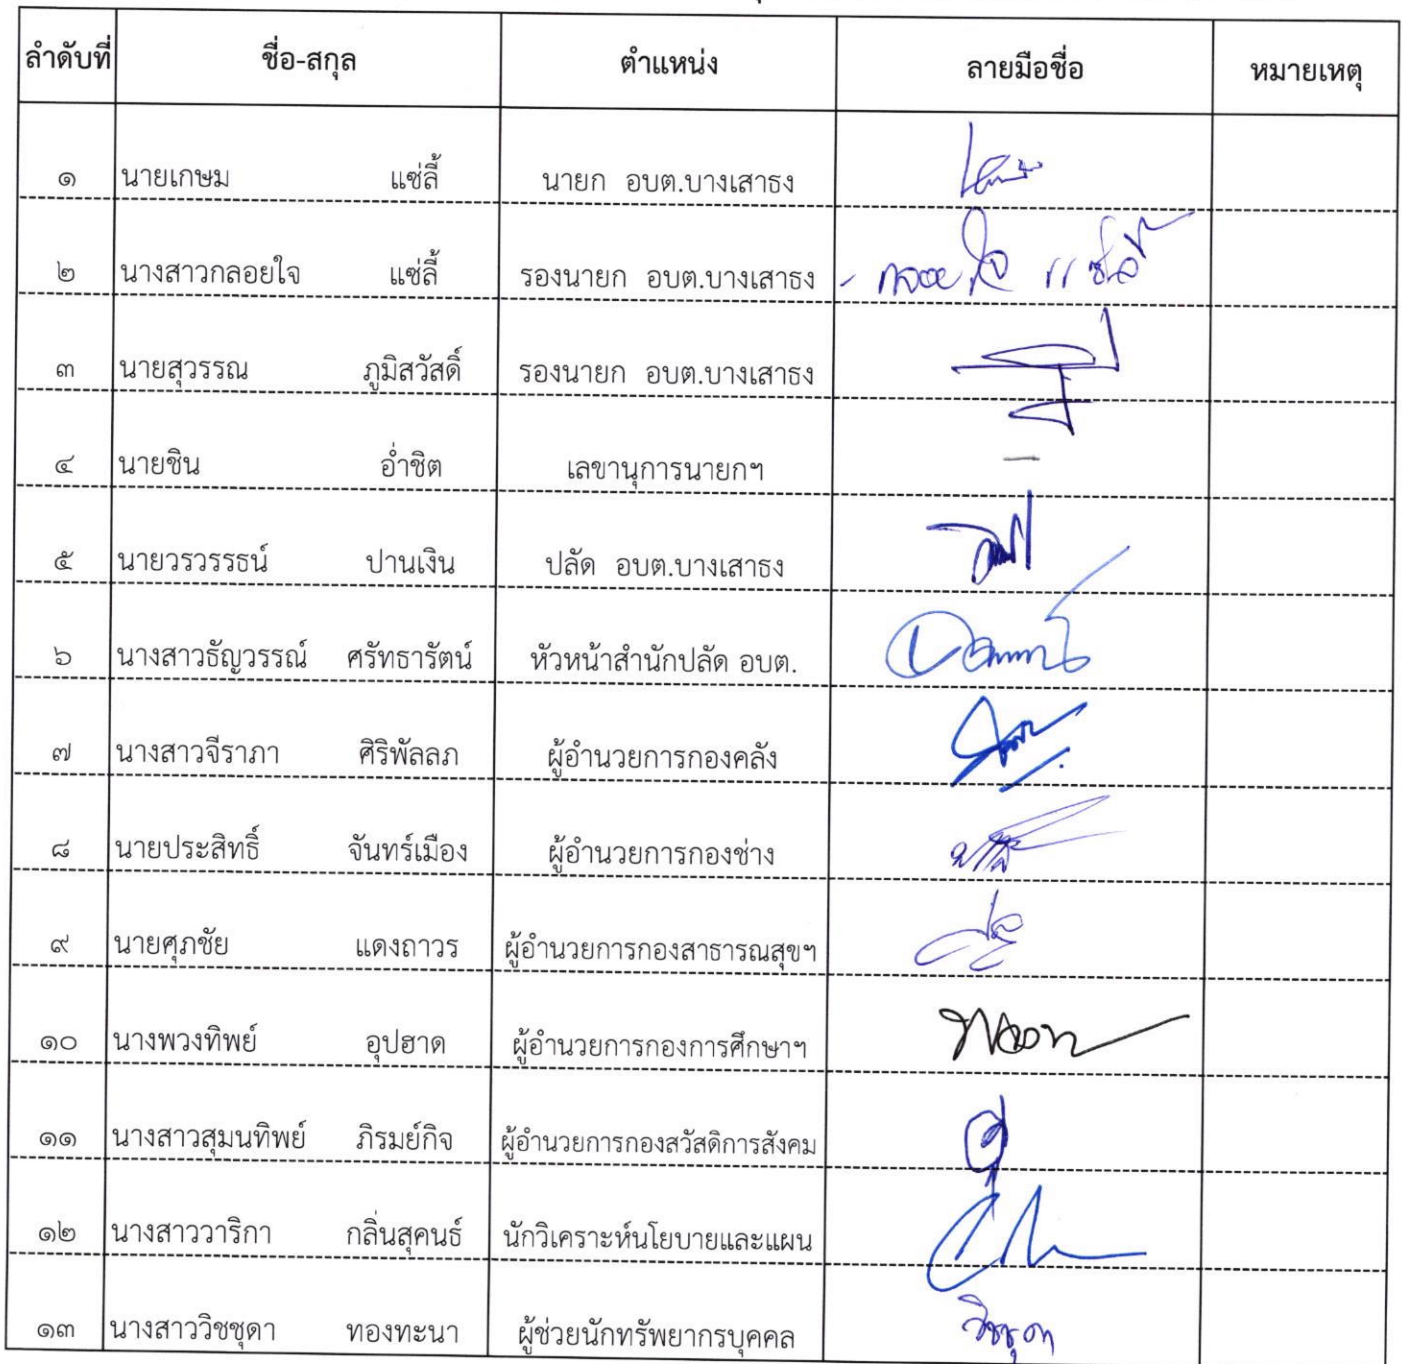 ลำดับที่ ชื่อ-สกุล ตำแหน่ง ลายมือชื่อ หมายเหตุ
๑ นายเกษม แซ่ลี้ นายก อบต.บางเสาธง
๒ นางสาวกลอยใจ แซ่ลี้ รองนายก อบต.บางเสาธง - กลอยใจ แซ่ลี้
๓ นายสุวรรณ ภูมิสวัสดิ์ รองนายก อบต.บางเสาธง
๔ นายชิน อ่ำชิต เลขานุการนายกฯ —
๕ นายวรวรรธน์ ปานเงิน ปลัด อบต.บางเสาธง
๖ นางสาวธัญวรรณ์ ศรัทธารัตน์ หัวหน้าสำนักปลัด อบต.
๗ นางสาวจีราภา ศิริพัลลภ ผู้อำนวยการกองคลัง
๘ นายประสิทธิ์ จันทร์เมือง ผู้อำนวยการกองช่าง
๙ นายศุภชัย แดงถาวร ผู้อำนวยการกองสาธารณสุขฯ
๑๐ นางพวงทิพย์ อุปฮาด ผู้อำนวยการกองการศึกษาฯ
๑๑ นางสาวสุมนทิพย์ ภิรมย์กิจ ผู้อำนวยการกองสวัสดิการสังคม
๑๒ นางสาววาริกา กลิ่นสุคนธ์ นักวิเคราะห์นโยบายและแผน
๑๓ นางสาววิชชุดา ทองทะนา ผู้ช่วยนักทรัพยากรบุคคล วิชชุดา